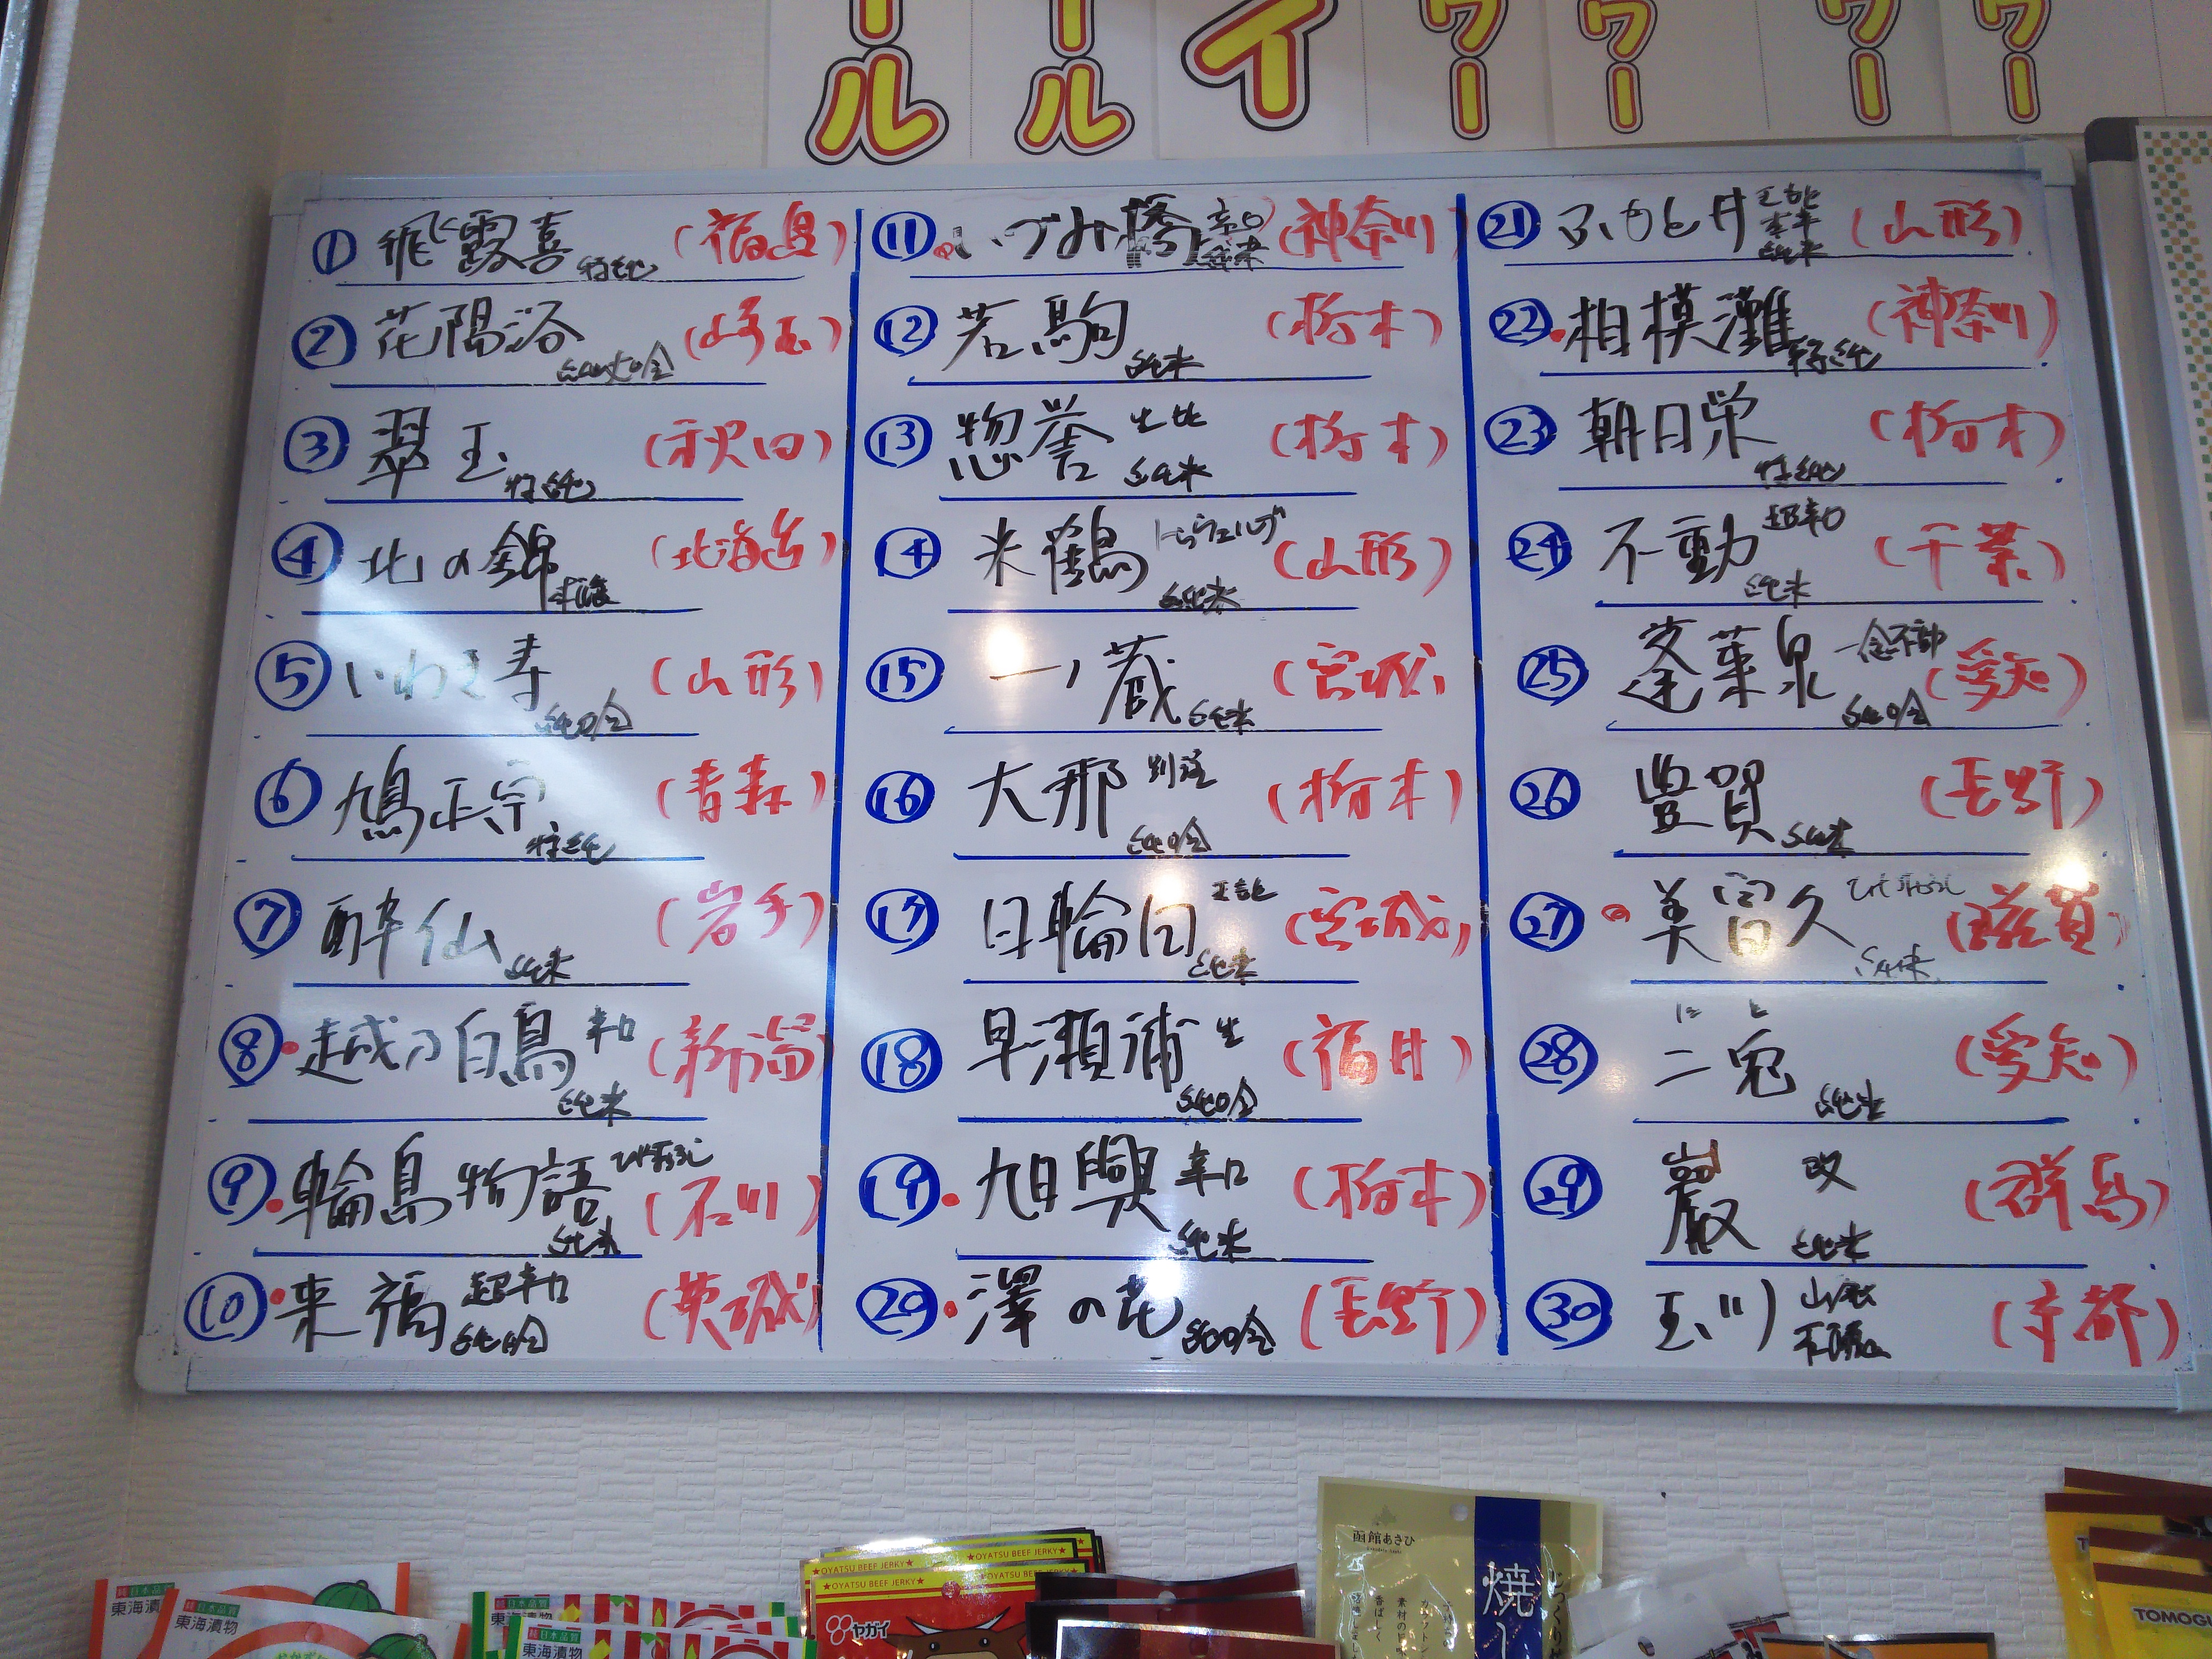 ール
ール
イ
ワー
ワー
ワー
ワー
① 飛露喜 特純 (福島)
② 花陽浴 純大吟 (埼玉)
③ 翠玉 特純 (秋田)
④ 北の錦 (北海道)
⑤ いわき寿 純吟 (山形)
⑥ 鳩正宗 特純 (青森)
⑦ 酔仙 純米 (岩手)
⑧ 越乃白鳥 辛口 純米 (新潟)
⑨ 輪島物語 ひやおろし 純米 (石川)
⑩ 来福 超辛口 純吟 (茨城)
⑪ いづみ橋 辛口 純米 (神奈川)
⑫ 若駒 純米 (栃木)
⑬ 惣誉 生酛 純米 (栃木)
⑭ 米鶴 純米 (山形)
⑮ 一ノ蔵 純米 (宮城)
⑯ 大那 別誂 純吟 (栃木)
⑰ 日輪田 純米 (宮城)
⑱ 早瀬浦 生 純吟 (福井)
⑲ 旭興 辛口 純米 (栃木)
⑳ 澤の花 純吟 (長野)
㉑ ふもと井 純米 (山形)
㉒ 相模灘 特純 (神奈川)
㉓ 朝日栄 特純 (栃木)
㉔ 不動 超辛口 純米 (千葉)
㉕ 蓬莱泉 一念不動 純吟 (愛知)
㉖ 豊賀 純米 (長野)
㉗ 美冨久 ひやおろし 純米 (滋賀)
にと
㉘ 二兎 純米 (愛知)
㉙ 巖 改 純米 (群馬)
㉚ 玉川 山廃 (京都)
純日本品質
東海漬物
純日本品質
東海漬物
純日本品質
東海漬物
純日本品質
東海漬物
★OYATSU BEEF JERKY★
★OYATSU BEEF JERKY★
OYATSU BEEF JERKY★
ヤガイ
函館あさひ
焼し
じっくり
素材の
香ばしく
TOMOGU